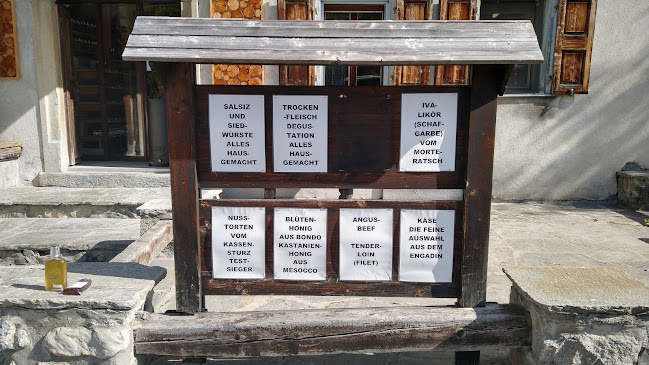 SALSIZ
UND
SIED-
WÜRSTE
ALLES
HAUS-
GEMACHT
TROCKEN
-FLEISCH
DEGUS-
TATION
ALLES
HAUS-
GEMACHT
IVA-
LIKÖR
(SCHAF-
GARBE)
VOM
MORTE-
RATSCH
NUSS-
TORTEN
VOM
KASSEN-
STURZ
TEST-
SIEGER
BLÜTEN-
HONIG
AUS BONDO
KASTANIEN-
HONIG
AUS
MESOCCO
ANGUS-
BEEF
TENDER-
LOIN
(FILET)
KÄSE
DIE FEINE
AUSWAHL
AUS DEM
ENGADIN